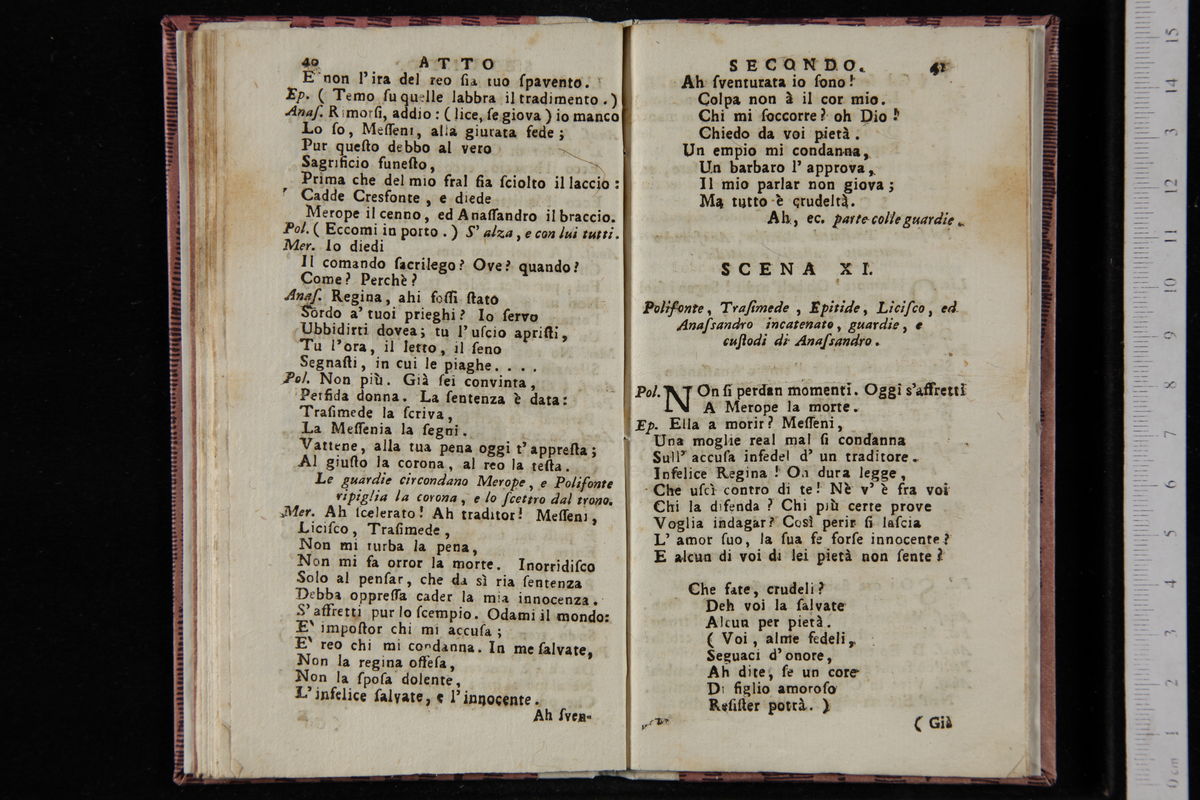 40 ATTO
E non l'ira del reo ſia tuo ſpavento.
Ep. ( Temo ſu quelle labbra il tradimento . )
Anaſ. Rimorſi, addio : ( lice, ſe giova ) io manco
Lo ſo, Meſſeni, alla giurata fede ;
Pur queſto debbo al vero
Sagrificio funeſto,
Prima che del mio fral ſia ſciolto il laccio :
Cadde Cresfonte , e diede
Merope il cenno, ed Anaſſandro il braccio.
Pol. ( Eccomi in porto . ) S' alza , e con lui tutti.
Mer. Io diedi
Il comando ſacrilego? Ove? quando?
Come? Perchè?
Anaſ. Regina, ahi foſſi ſtato
Sordo a' tuoi prieghi? Io ſervo
Ubbidirti dovea; tu l'uſcio apriſti,
Tu l'ora, il letto, il ſeno
Segnaſti, in cui le piaghe. . . .
Pol. Non più. Già ſei convinta,
Perfida donna. La ſentenza è data:
Traſimede la ſcriva,
La Meſſenia la ſegni.
Vattene, alla tua pena oggi t'appreſta;
Al giuſto la corona, al reo la teſta.
Le guardie circondano Merope, e Polifonte
ripiglia la corona, e lo ſcettro dal trono.
Mer. Ah ſcelerato! Ah traditor! Meſſeni,
Liciſco, Traſimede,
Non mi turba la pena,
Non mi fa orror la morte. Inorridiſco
Solo al penſar, che da sì ria ſentenza
Debba oppreſſa cader la mia innocenza.
S'affretti pur lo ſcempio. Odami il mondo:
E' impoſtor chi mi accuſa ;
E' reo chi mi condanna. In me ſalvate,
Non la regina offeſa,
Non la ſpoſa dolente,
L'infelice ſalvate, e l'innocente.
Ah ſven-
SECONDO. 41
Ah ſventurata io ſono!
Colpa non à il cor mio.
Chi mi ſoccorre? oh Dio!
Chiedo da voi pietà .
Un empio mi condanna,
Un barbaro l' approva,
Il mio parlar non giova ;
Ma tutto è crudeltà.
Ah, ec. parte colle guardie.
SCENA XI.
Polifonte, Traſimede , Epitide, Liciſco, ed
Anaſsandro incatenato, guardie, e
cuſtodi di Anaſsandro .
Pol. NOn ſi perdan momenti. Oggi s'affretti
A Merope la morte.
Ep. Ella a morir? Meſſeni,
Una moglie real mal ſi condanna
Sull' accuſa infedel d' un traditore.
Infelice Regina ! Oh dura legge,
Che uſcì contro di te! Nè v' è fra voi
Chi la difenda ? Chi più certe prove
Voglia indagar? Così perir ſi laſcia
L' amor ſuo, la ſua fe forſe innocente?
E alcun di voi di lei pietà non ſente?
Che fate, crudeli?
Deh voi la ſalvate
Alcun per pietà.
( Voi , alme fedeli,
Seguaci d'onore,
Ah dite, ſe un core
Di figlio amoroſo
Reſiſter potrà. )
( Già